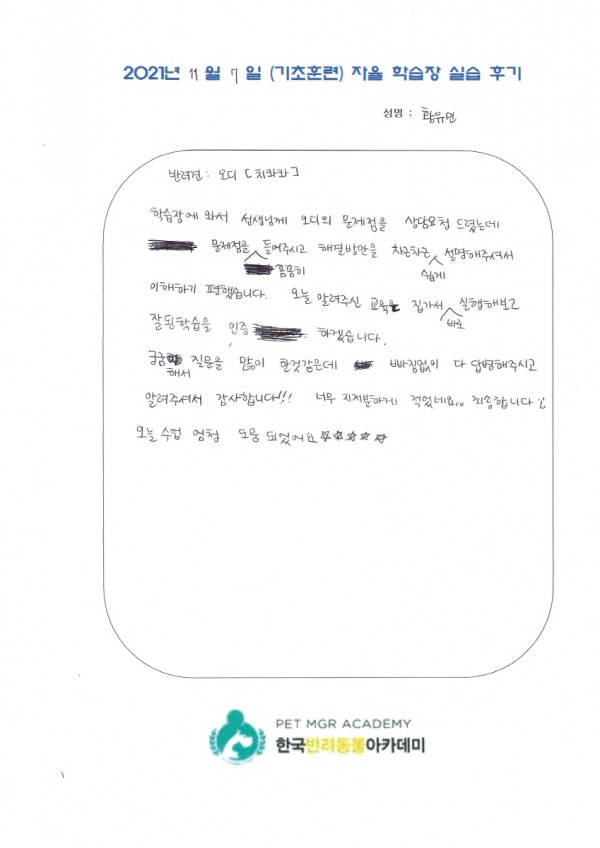 2021년 11 월 7 일 (기초훈련) 자율 학습장 실습 후기
성명 : 황유민
반려견: 오디 [치와와]
학습장에 와서 선생님께 오디의 문제점을 상담요청 드렸는데
문제점을 꼼꼼히 들어주시고 해결방안을 차근차근 쉽게 설명해주셔서
이해하기 편했습니다. 오늘 알려주신 교육을 집가서 바로 실행해보고
잘된학습을 인증 하겠습니다.
궁금해서 질문을 많이 한것같은데 빠짐없이 다 답변해주시고
알려주셔서 감사합니다!!! 너무 지저분하게 적었네요,,, 죄송합니다
오늘 수업 엄청 도움 되었어요☆☆☆☆☆
PET MGR ACADEMY
한국반려동물아카데미